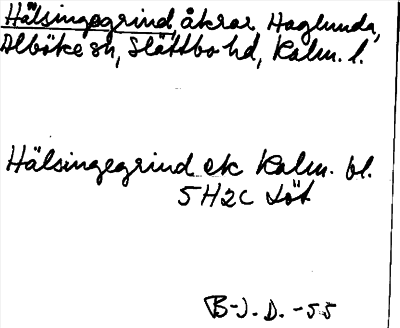 Hälsingegrind, åkrar, Haglunda,
Alböke sn, Slättbo hd, Kalm. l.
Hälsingegrind ek Kalm. bl.
5H2C Löt
B-J. D. -55